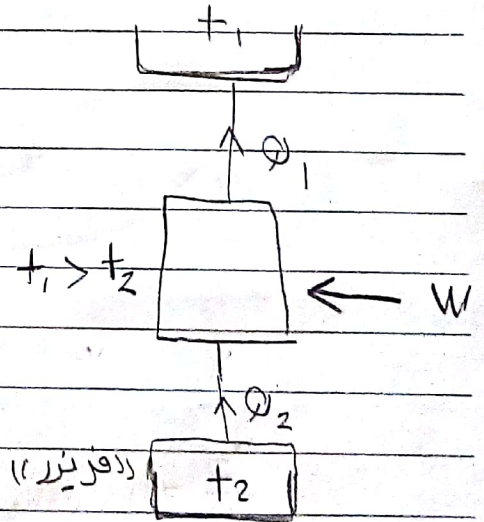 t₁
Q₁
t₁ > t₂
W
Q₂
((فریزر))
t₂